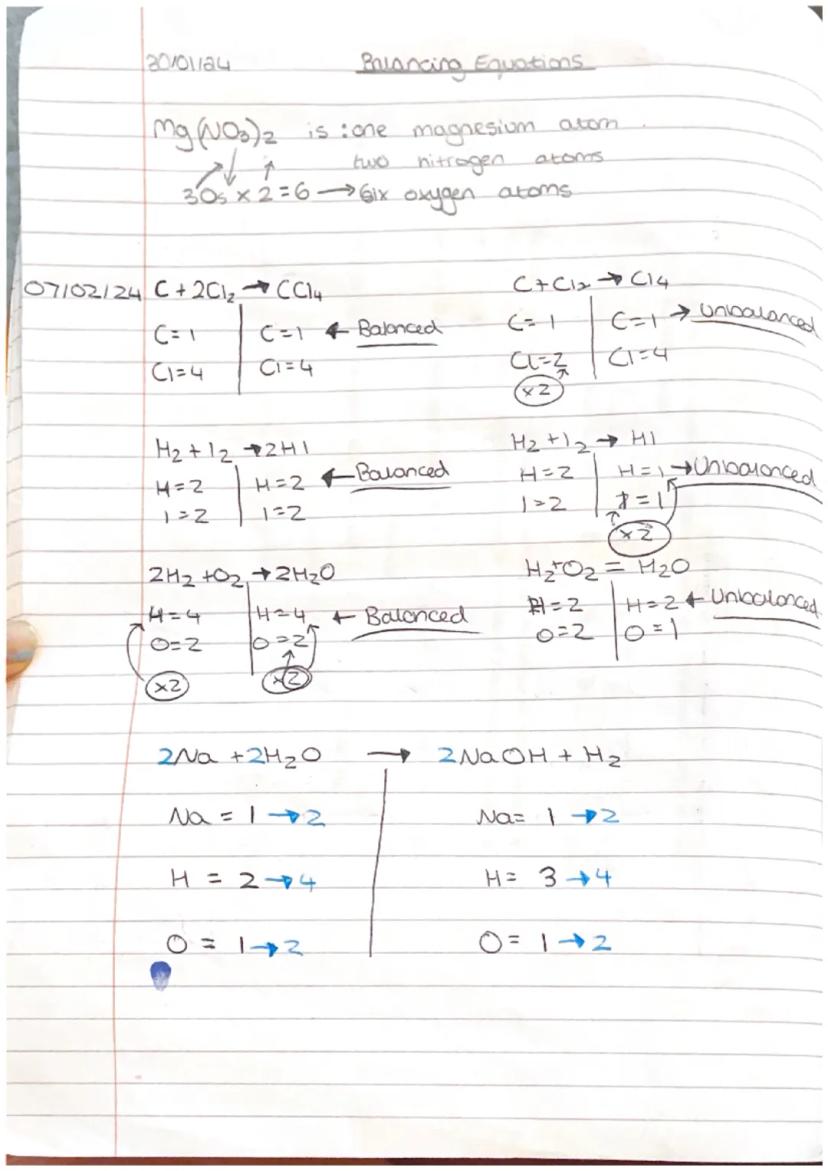 30/01/24 Balancing Equations
Mg(NO₃)₂ is : one magnesium atom.
two nitrogen atoms
3 Os x 2 = 6 → six oxygen atoms
07/02/24 C + 2Cl₂ → CCl₄
C = 1 C = 1 ← Balanced
Cl = 4 Cl = 4
C + Cl₂ → Cl4
C = 1 C = 1 → Unbalanced
Cl = 2 Cl = 4
x2
H₂ + I₂ → 2HI
H = 2 H = 2 ← Balanced
I = 2 I = 2
H₂ + I₂ → HI
H = 2 H = 1 → Unbalanced
I = 2 I = 1
x2
2H₂ + O₂ → 2H₂O
H = 4 H = 4 ← Balanced
O = 2 O = 2
x2 x2
H₂ + O₂ = H₂O
H = 2 H = 2 ← Unbalanced
O = 2 O = 1
2Na + 2H₂O → 2NaOH + H₂
Na = 1 → 2 Na = 1 → 2
H = 2 → 4 H = 3 → 4
O = 1 → 2 O = 1 → 2